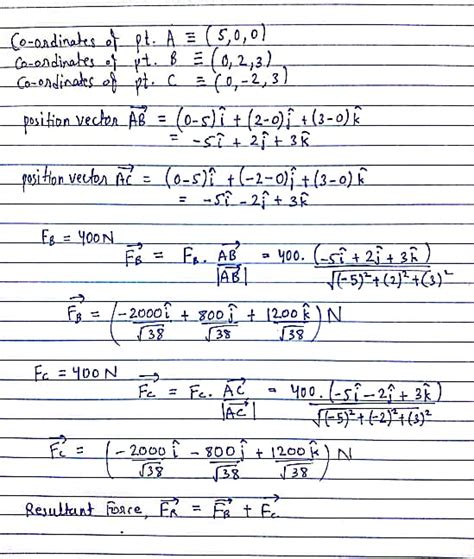 Co-ordinates of pt. A ≡ (5,0,0)
Co-ordinates of pt. B ≡ (0,2,3)
Co-ordinates of pt. C ≡ (0,-2,3)
position vector AB⃗ = (0-5)î + (2-0)ĵ + (3-0)k̂
= -5î + 2ĵ + 3k̂
position vector AC⃗ = (0-5)î + (-2-0)ĵ + (3-0)k̂
= -5î - 2ĵ + 3k̂
F_B = 400N
F_B⃗ = F_B . AB⃗/|AB⃗| = 400. (-5î + 2ĵ + 3k̂)/√((-5)²+(2)²+(3)²
F_B⃗ = (-2000î/√38 + 800ĵ/√38 + 1200k̂/√38) N
F_C = 400N
F_C⃗ = F_C . AC⃗/|AC⃗| = 400. (-5î - 2ĵ + 3k̂)/√((-5)²+(-2)²+(3)²
F_C⃗ = (-2000î/√38 - 800ĵ/√38 + 1200k̂/√38) N
Resultant Force, F_R⃗ = F_B⃗ + F_C⃗